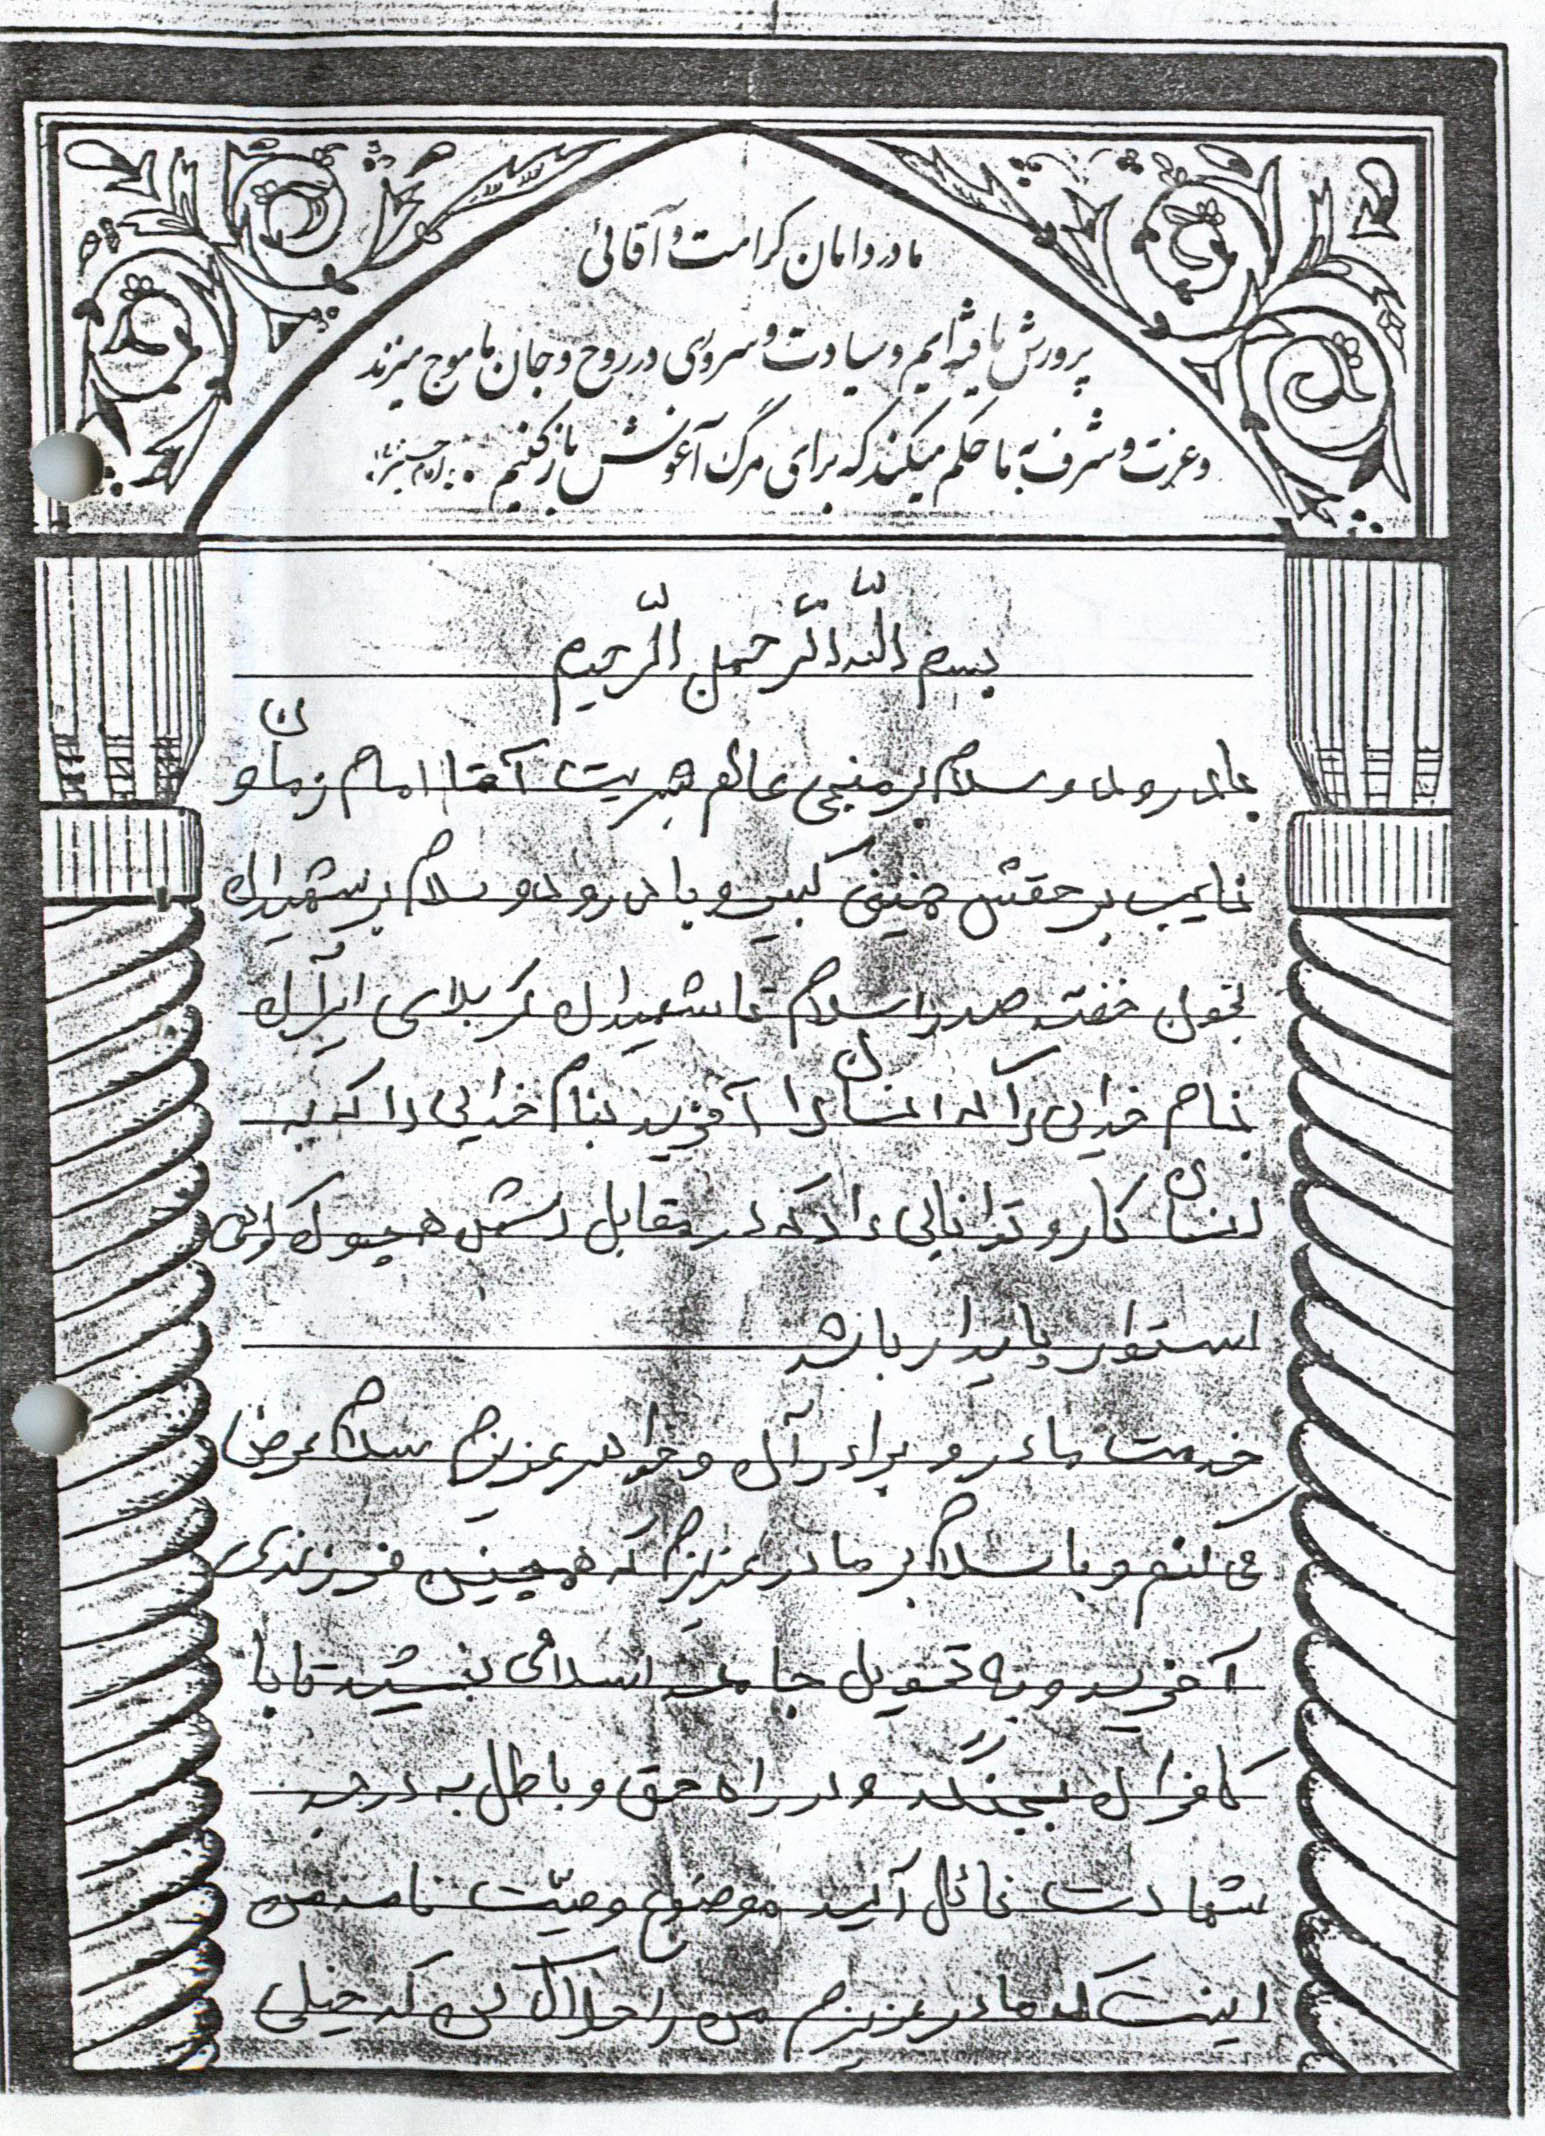 ما در دامان کرامت و آقائی
پرورش یافته ایم و سیادت و سروری در روح و جان ما موج میزند
و عزت و شرف به ما حکم میکند که برای مرگ آغوش باز کنیم .
بسم اللّه الرّحمن الرّحیم
بادرود و سلام بر منجی عالم بشریت آقا امام زمان و
نایب بر حقش خمینی کبیر و با درود و سلام بر شهیدان
بخون خفته صدر اسلام تا شهیدان کربلای ایران
بنام خدایی را که انسان را آفرید بنام خدایی را که به
انسان کار و توانایی داد که در مقابل دشمن همچون کوهی
استوار پایدار باشد
خدمت مادر و برادرآن و خواهر عزیزم سلام عرض
می کنم و با سلام بر مادر عزیزم که همچنین فرزندی
آفرید و به تحویل جامعه اسلامی بخشید تا با
کافران بجنگد و در راه حق و باطل به درجه
شهادت نائل آید موضوع وصیّت نامه من
اینست که مادر عزیزم من را حلال کن که خیلی